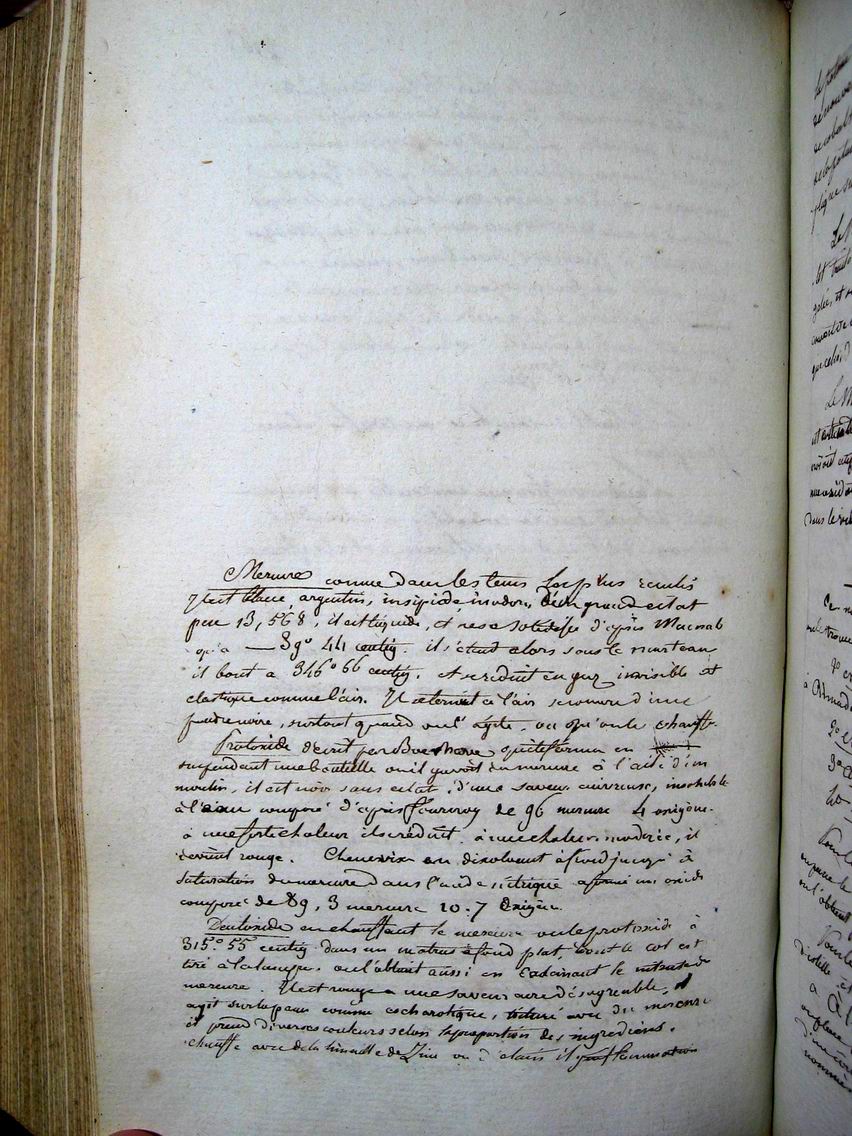 Mercure connu dans les tems les plus reculés
Il est blanc argentin, insipide inodore, d'un grand eclat
pese 13,568, il est liquide, et ne se solidifie d'après Macnab
qu'a — 39° 44 centig. il s'etend alors sous le marteau
il bout a 346° 66 centig. et se reduit en gaz invisible et
elastique comme l'air. Il se ternit a l'air se couvre d'une
poudre noire, surtout quand on l'agite, ou qu'on le chauffe.
Protoxide decrit par Boerhaave, qui le forma en
suspendant une bouteille ou il y avoit du mercure à l'aile d'un
moulin, il est noir sans eclat, d'une saveur cuivreuse, insoluble
à l'eau composé d'après fourcroy de 96 mercure 4 oxigène.
a une forte chaleur il se réduit. à une chaleur modérée, il
devient rouge. Chenevix en dissolvant à froid jusqu'à
saturation du mercure dans l'acide nitrique a formé un oxide
composé de 89,3 mercure 10.7 Oxigène
Deutoxide en chauffant le mercure ou le protoxide à
315° 55 centig dans un matras à fond plat, dont le col est
tiré à la lampe. on l'obtient aussi en calcinant le nitrate de
mercure. Il est rouge a une saveur acre désagreable, et
agit sur la peau comme escharotique, trituré avec du mercure
il prend diverses couleurs selon la proportion des ingrédiens.
chauffé avec de la limaille de Zinc ou d'etain il y a inflammation